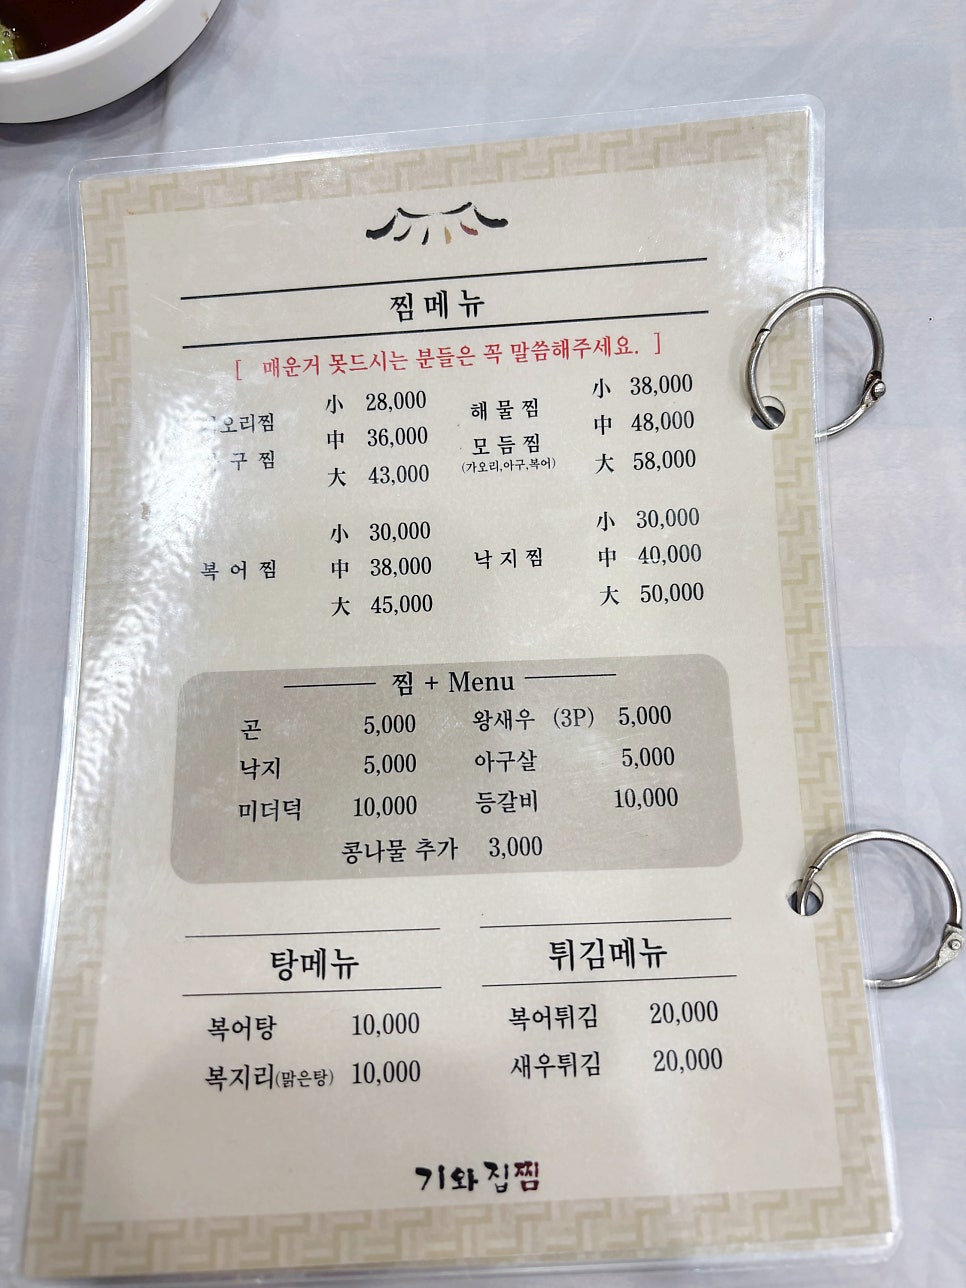 찜메뉴
[ 매운거 못드시는 분들은 꼭 말씀해주세요. ]
小 28,000
中 36,000
大 43,000
해물찜
모듬찜
(가오리,아구,복어)
小 38,000
中 48,000
大 58,000
복어찜
小 30,000
中 38,000
大 45,000
낙지찜
小 30,000
中 40,000
大 50,000
찜 + Menu
곤 5,000 왕새우 (3P) 5,000
낙지 5,000 아구살 5,000
미더덕 10,000 등갈비 10,000
콩나물 추가 3,000
탕메뉴
복어탕 10,000
복지리(맑은탕) 10,000
튀김메뉴
복어튀김 20,000
새우튀김 20,000
기와집찜